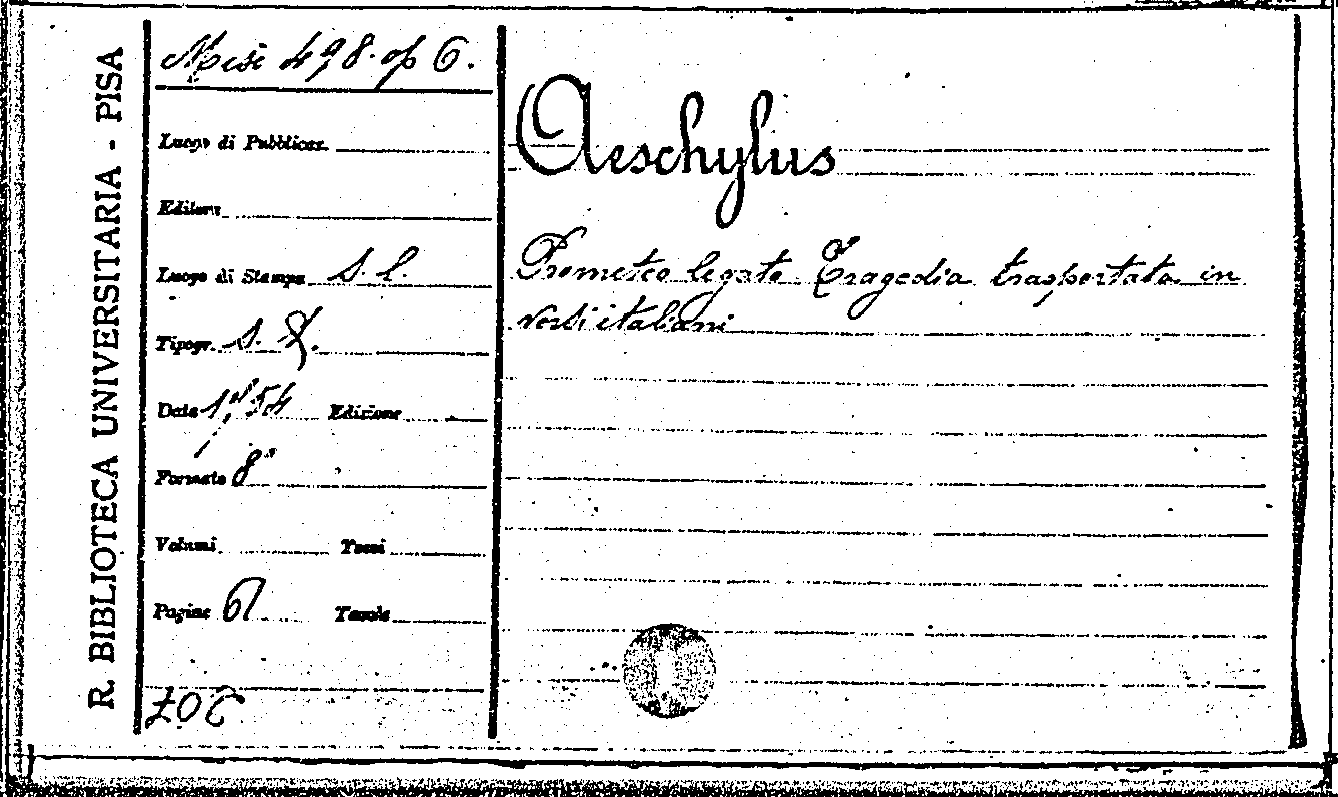 R. BIBLIOTECA UNIVERSITARIA - PISA
Misc 498. op 6.
Luogo di Pubblicaz.
Editore
Luogo di Stampa S. l.
Tipogr. S. t.
Data 1754 Edizione
Formato 8°
Volumi Tomi
Pagine 61 Tavole
Aeschylus
Prometeo legato. Tragedia trasportata in
versi italiani